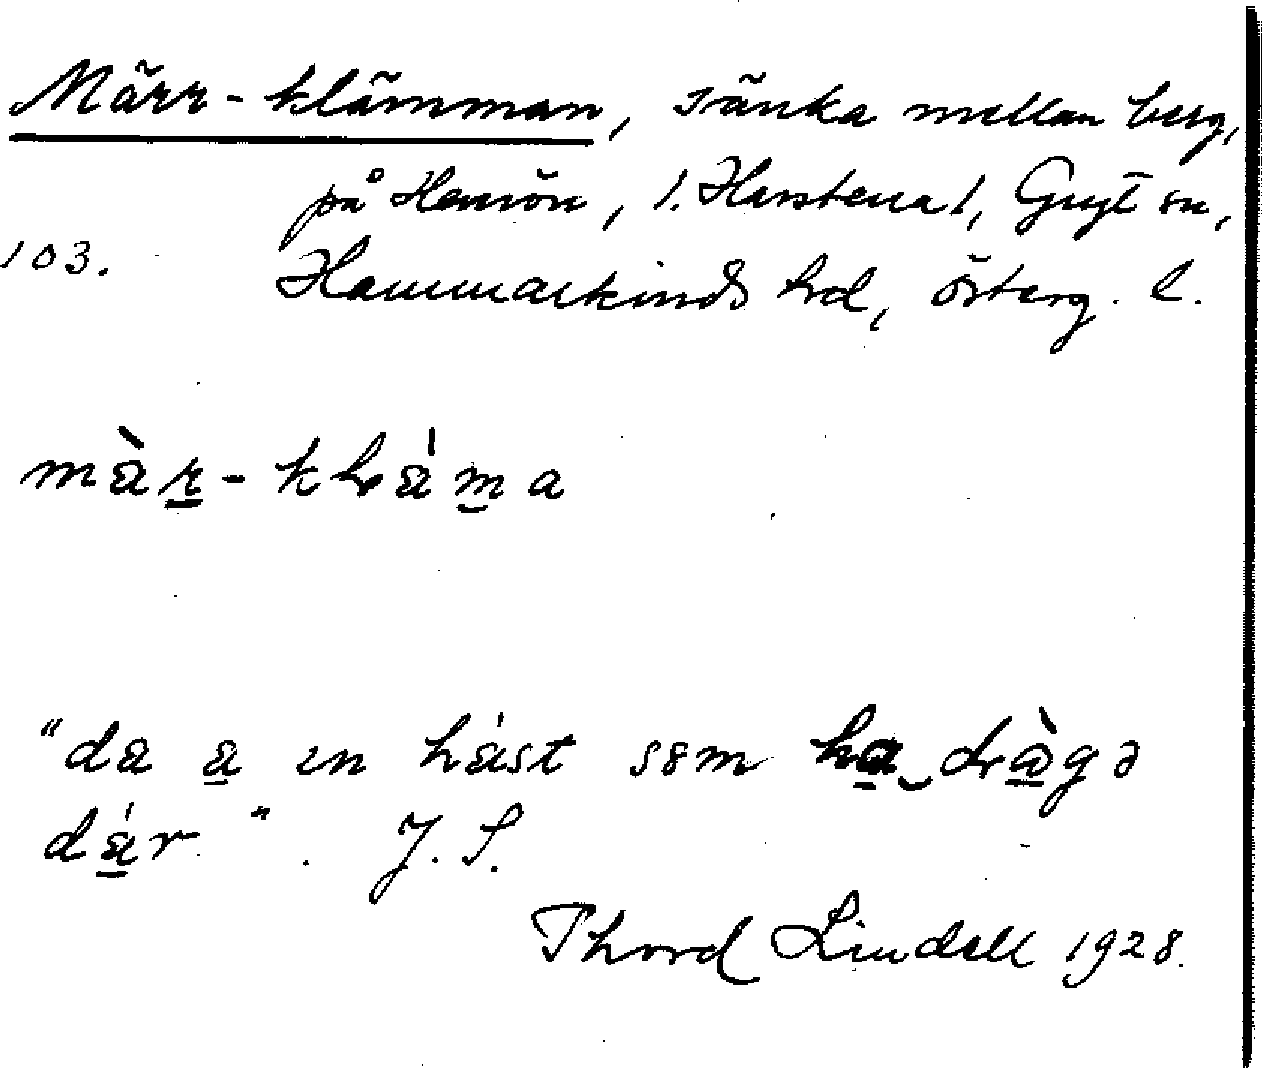 Märr-klämman, sänka mellan berg,
på Hemön, /. Harstena /, Gryt sn,
103. Hammarkinds hrd, Österg. l.
màr-klǽma
"dæ æ en hǽst sɵm ha drɑ̀gə
dǽr". J. S.
Thord Lindell 1928.